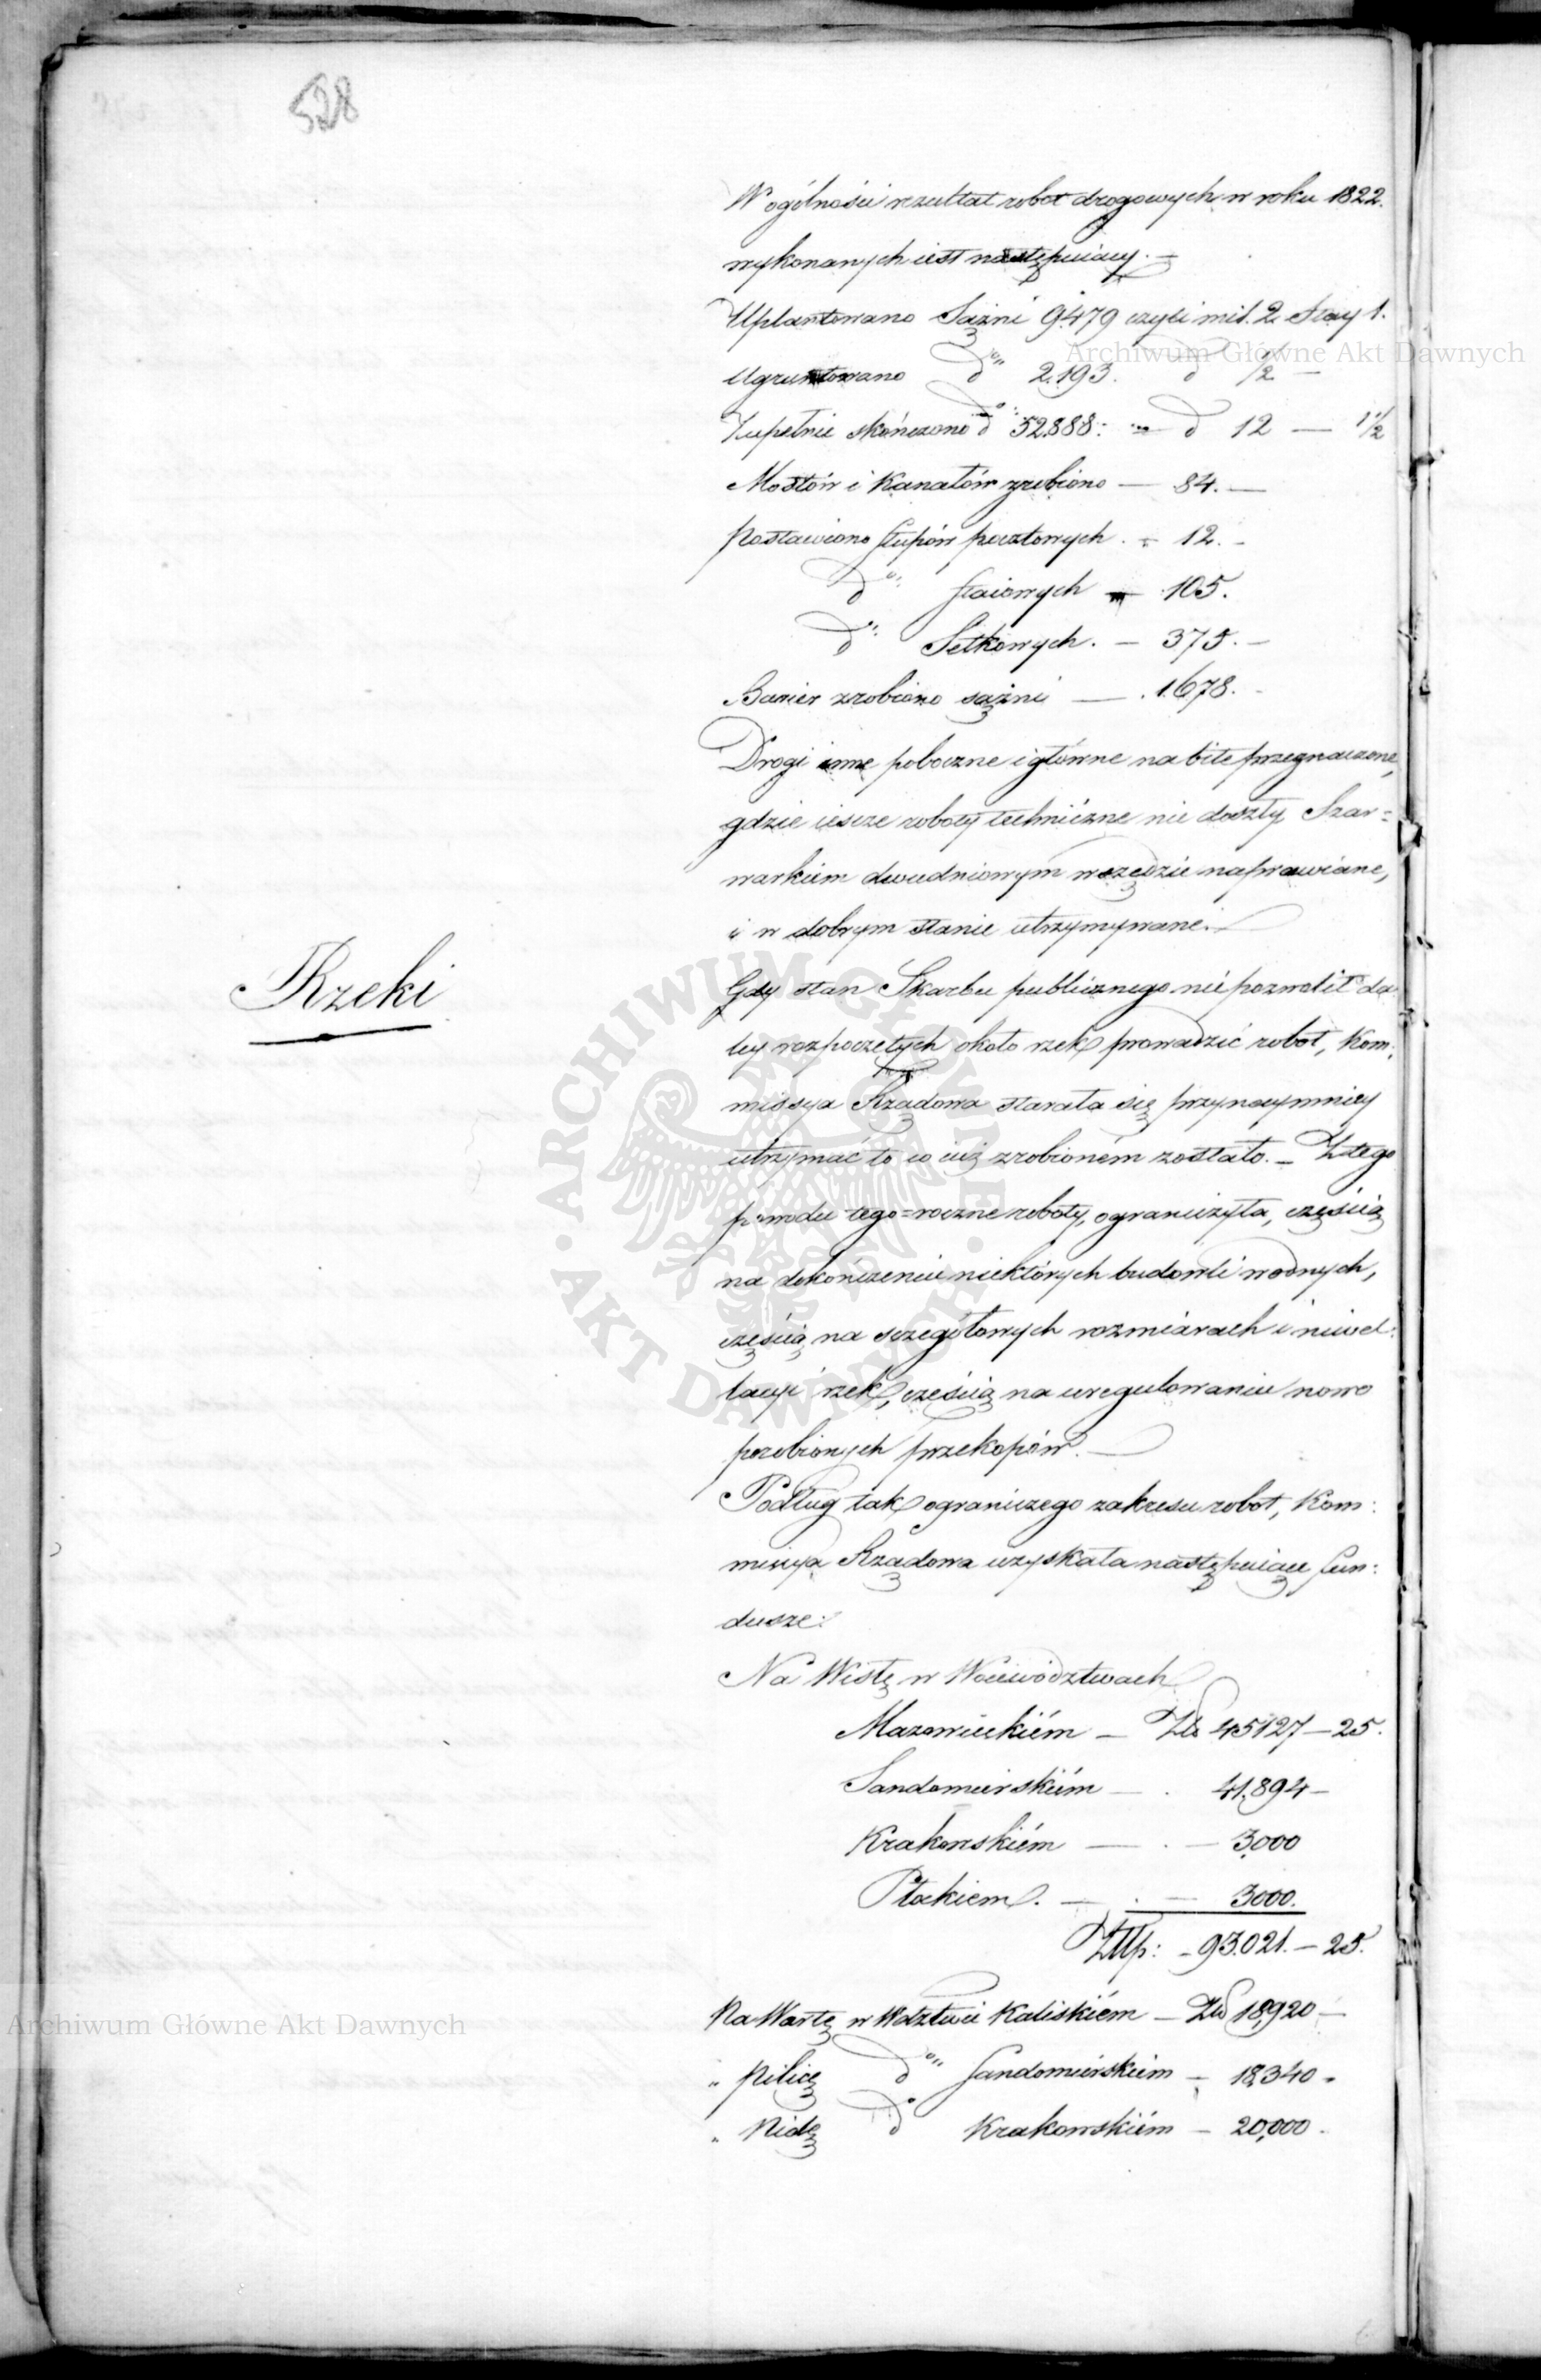 528
W ogólności rezultat robot drogowych w roku 1822.
wykonanych iest następuiący. —
Uplantowano Sążni 9479 czyli mil. 2. Stay 1.
Ugruntowano do 2,193. do ½ —
Zupełnie skończono do 52888: — do 12 — 1½
Mostów i Kanałów zrobiono — 84. —
Postawiono słupów pocztowych. — 12. —
do staiowych — 105.
do Setkowych. — 375. —
Barier zrobiono sążni — 1.678. —
Drogi inne poboczne i główne na bite przeznaczone,
gdzie iescze roboty techniczne nie doszły Szar=
warkiem dwudniowym wszędzie naprawiane,
i w dobrym stanie utrzymywane. —
Rzeki
Gdy stan Skarbu publicznego nie pozwolił da
ley rozpoczętych około rzek prowadzić robot, Kom:
missya Rządowa starała się przynaymniey
utrzymać to co iuż zrobioném zostało. — Z tego
powodu tego=roczne roboty, ograniczyła, częścią
na dokończeniu niektórych budowli wodnych,
częścią na sczegółowych rozmiarach i niwel:
lacyi rzek, częścią na uregulowaniu nowo
porobionych przekopów. —
Podług tak ograniczego zakresu robot, Kom:
missya Rządowa uzyskała następuiące fun:
dusze:
Na Wisłę w Województwach
Mazowieckiém — Zł. 45127 — 25.
Sandomirskiém — . 41,894 —
Krakowskiém — . — 3,000
Płockiem. — . — 3000.
Złłp: — 93.021. — 25.
Na Wartę w Wdztwie Kaliskiém — Zł 18,920 —
„ Pilicę do Sandomirskiem — 18,340 „
„ Nidę do Krakowskiém — 20,000.
Archiwum Główne Akt Dawnych
Archiwum Główne Akt Dawnych
ARCHIWUM GŁÓWNE · AKT DAWNYCH ·